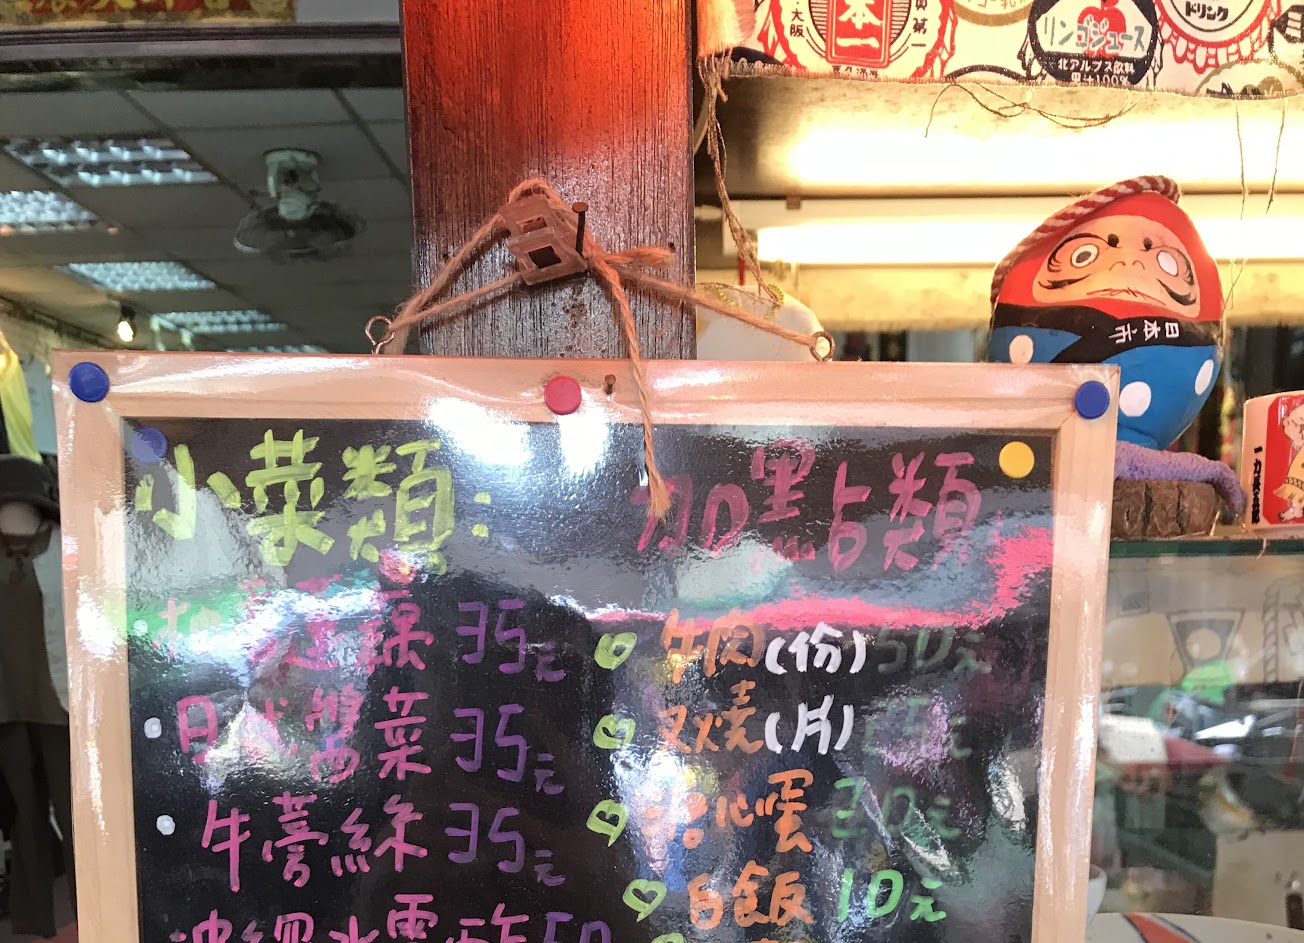 大阪
本一
ドリンク
リンゴジュース
北アルプス飲料
果汁100%
日本市
小菜類:
35元
日式醬菜 35元
牛蒡絲 35元
50
加點類
牛肉(份) 50元
叉燒(片) 25元
糖心蛋 20元
白飯 10元